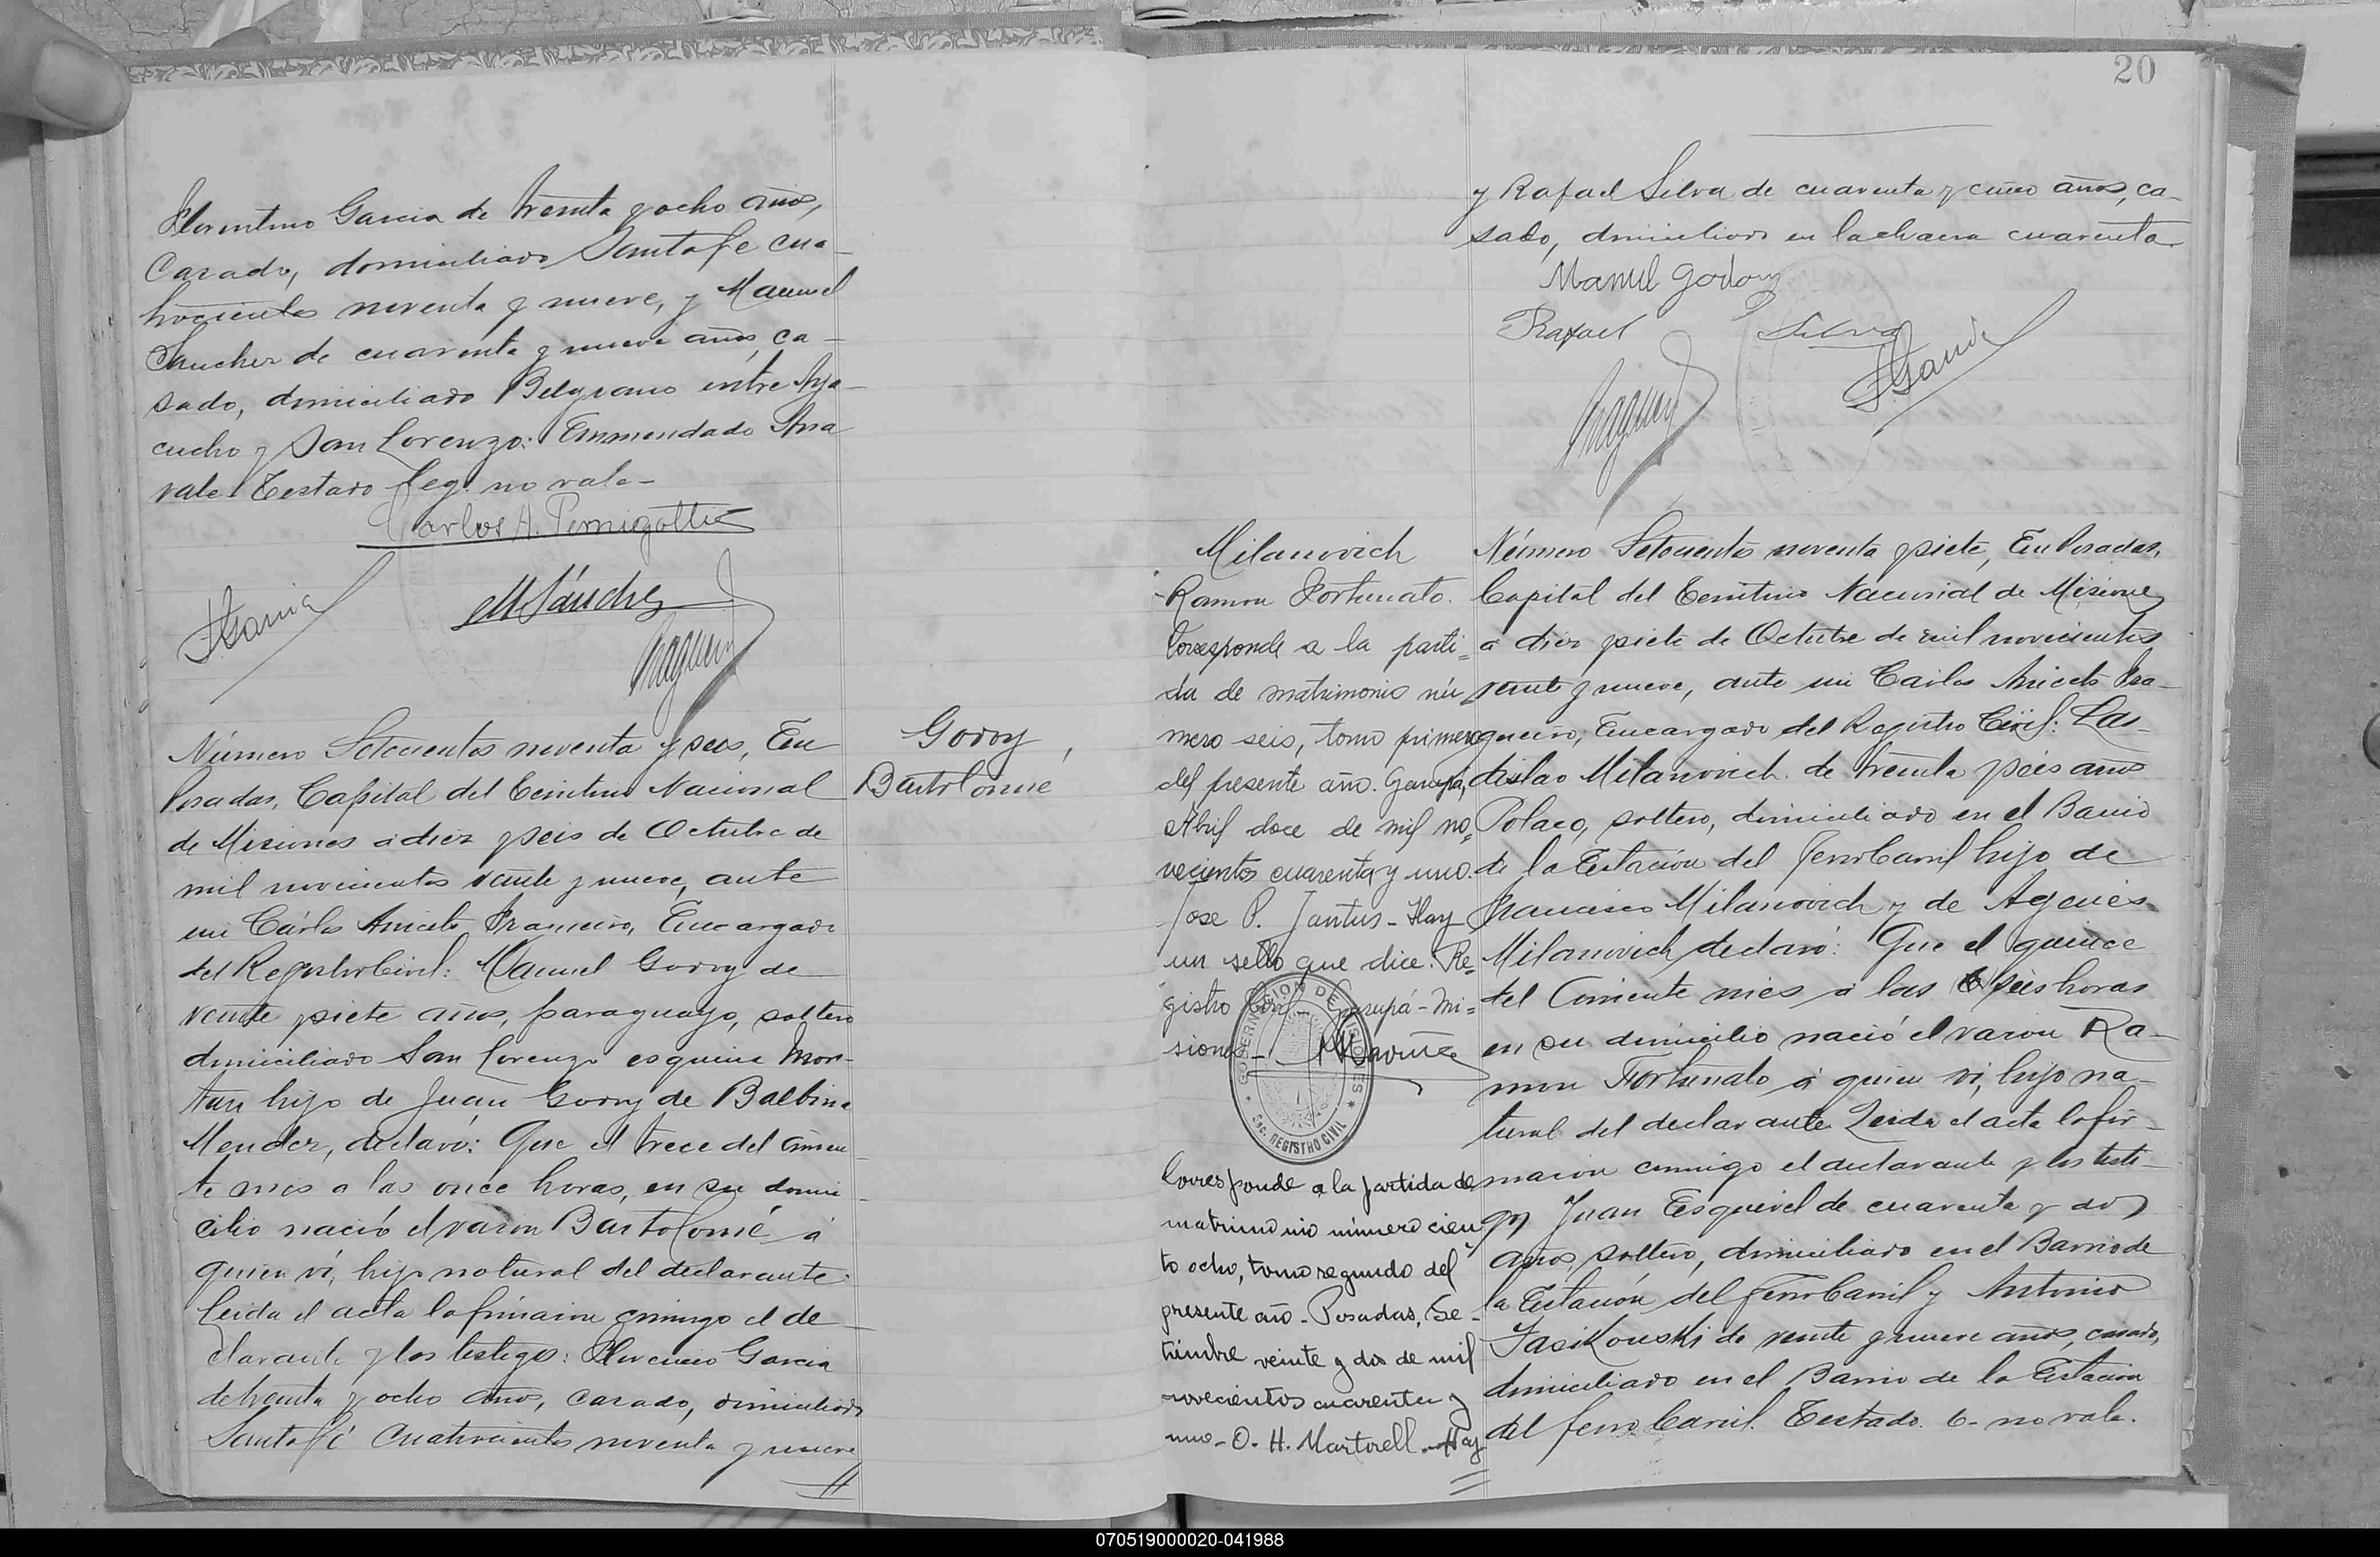 Florentino Garcia de treinta y ocho años,
Casado, domiciliado Santa fe cua-
trocientos noventa y nueve, y Manuel
Sanchez de cuarenta y nueve años, ca-
sado, domiciliado Belgrano entre Aya-
cucho y San Lorenzo: Enmendado Ana
vale. Testado leg. no vale-
Carlos A. Pernigotti
FGarcia
MSánchez
Número Setecientos noventa y seis, En
Posadas, Capital del Territorio Nacional
de Misiones a diez y seis de Octubre de
mil novecientos veinte y nueve, ante
mi Cárlos Aniceto Fragueiro, Encargado
del Registro Civil: Manuel Godoy de
veinte y siete años, paraguayo, soltero
domiciliado San Lorenzo esquina
hijo de Juan Godoy de Balbina
Mendez, declaró: Que el trece del corrien-
te mes a las once horas, en su domi-
cilio nació el varon Bartolomé á
quien ví, hijo natural del declarante.
Leida el acta la firmaron conmigo el de-
clarante y los testigos: Florencio Garcia
de treinta y ocho años, casado, domiciliado
Santa fé Cuatrocientos noventa y nueve
Godoy,
Bartolomé
20
y Rafael Silva de cuarenta y cinco años, ca-
sado, domiciliado en la chacra cuarenta
Manuel Godoy
Rafael Silva
FGarcia
Milanovich
Ramon Fortunato.
Corresponde a la parti=
da de matrimonio nú
mero seis, tomo primero
del presente año. Garupá,
Abril doce de mil no=
vecientos cuarenta y uno.
Jose P. Jantus - Hay
un sello que dice: Re=
gistro Civil - Garupá - Mi=
siones -
GOBERNACION DE MISIONES
REGISTRO CIVIL
Corresponde a la partida de
matrimonio número cien
to ocho, tomo segundo del
presente año - Posadas, Se-
tiembre veinte y dos de mil
novecientos cuarenta y
uno - O. H. Martorell - Hay
Número Setecientos noventa y siete, En Posadas,
Capital del Territorio Nacional de Misiones
á diez y siete de Octubre de mil novecientos
veinte y nueve, ante mi Carlos Aniceto Fra-
gueiro, Encargado del Registro Civil: Las-
dislao Milanovich de treinta y seis años
Polaco, soltero, domiciliado en el Barrio
de la Estación del ferro Carril hijo de
Francisco Milanovich y de Agenés
Milanovich declaró: Que el quince
del Corriente mes á las 6 seis horas
en su domicilio nació el varon Ra-
mon Fortunato á quien ví, hijo na-
tural del declarante Leida el acta la fir-
maron conmigo el declarante y los testi-
gos Juan Esquivel de cuarenta y dos
años, soltero, domiciliado en el Barrio de
la Estación del ferro Carril y Antonio
Jasikouski de veinte y nueve años, casado,
domiciliado en el Barrio de la Estacion
del ferro Carril. Testado. 6- no vale.
070519000020-041988